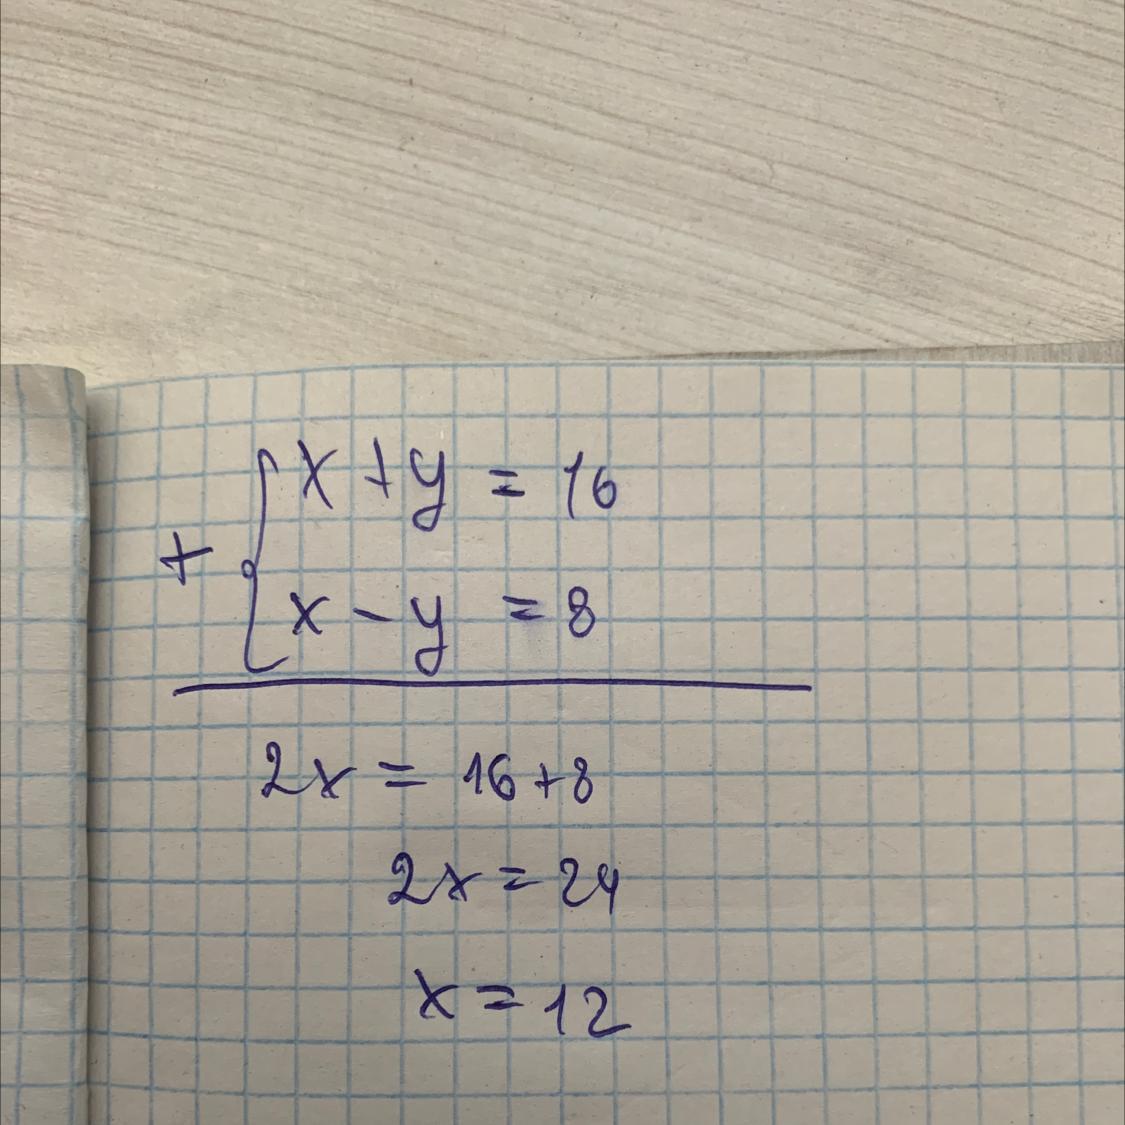 x + y = 16
+
x - y = 8
2x = 16 + 8
2x = 24
x = 12